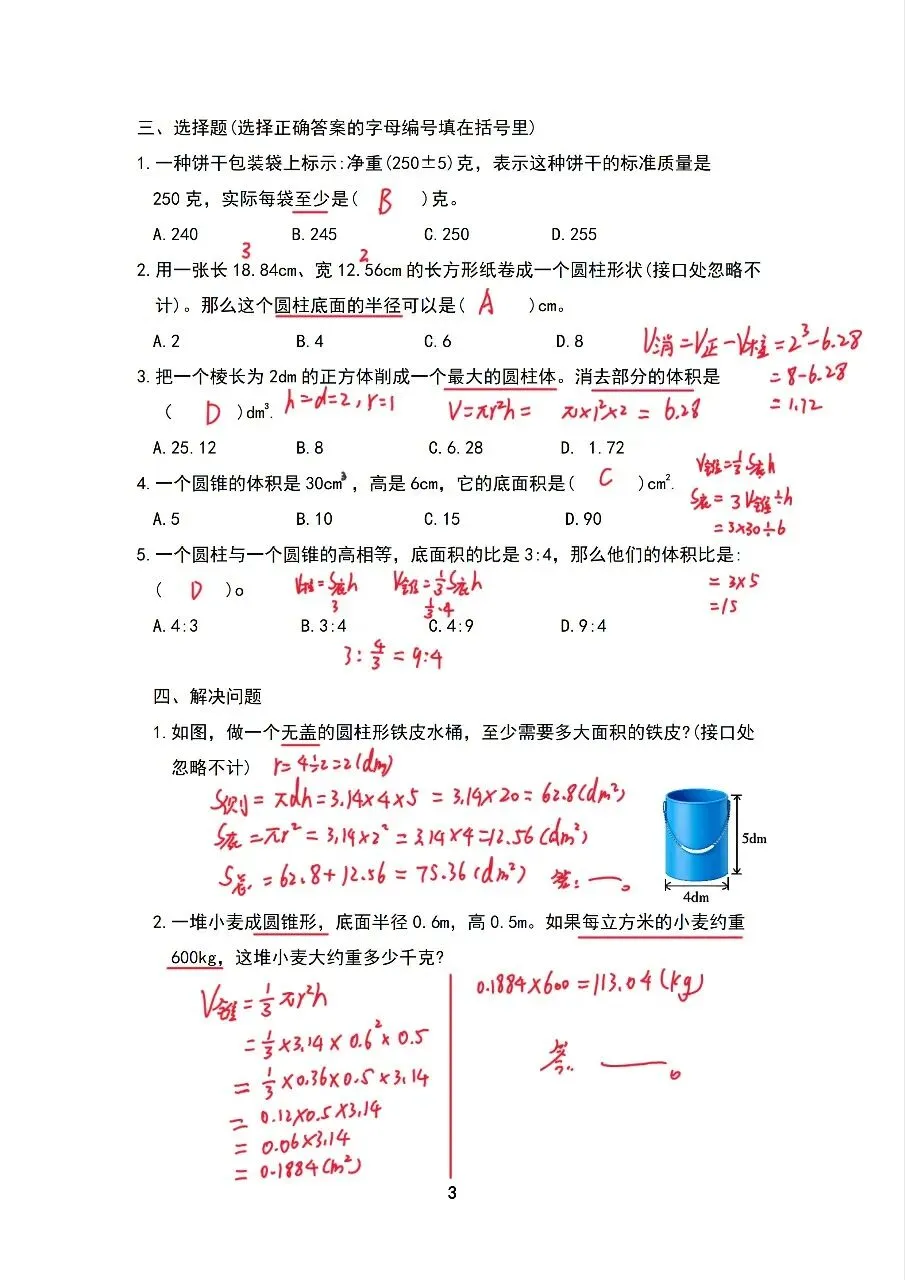 三、选择题(选择正确答案的字母编号填在括号里)
1.一种饼干包装袋上标示:净重(250±5)克，表示这种饼干的标准质量是
250克，实际每袋至少是( B )克。
A.240 B.245 C.250 D.255
3 2
2.用一张长18.84cm、宽12.56cm的长方形纸卷成一个圆柱形状(接口处忽略不
计)。那么这个圆柱底面的半径可以是( A )cm。
A.2 B.4 C.6 D.8
V消=V正-V柱=2³-6.28
=8-6.28
=1.72
3.把一个棱长为2dm的正方体削成一个最大的圆柱体。消去部分的体积是
( D )dm³. h=d=2,r=1 V=πr²h= π×1²×2 = 6.28
A.25.12 B.8 C.6.28 D. 1.72
4.一个圆锥的体积是30cm³，高是6cm，它的底面积是( C )cm².
A.5 B.10 C.15 D.90
V锥=⅓S底h
S底=3V锥÷h
=3×30÷6
=3×5
=15
5.一个圆柱与一个圆锥的高相等，底面积的比是3:4，那么他们的体积比是:
( D )。 V柱=S底h V锥=⅓S底h
3 ⅓·4
A.4:3 B.3:4 C.4:9 D.9:4
3:4/3=9:4
四、解决问题
1.如图，做一个无盖的圆柱形铁皮水桶，至少需要多大面积的铁皮?(接口处
忽略不计) r=4÷2=2(dm)
S侧=πdh=3.14×4×5=3.14×20=62.8(dm²)
S底=πr²=3.14×2²=3.14×4=12.56(dm²)
S总=62.8+12.56=75.36(dm²) 答:—。
5dm
4dm
2.一堆小麦成圆锥形，底面半径0.6m，高0.5m。如果每立方米的小麦约重
600kg，这堆小麦大约重多少千克?
V锥=⅓πr²h
=⅓×3.14×0.6²×0.5
=⅓×0.36×0.5×3.14
=0.12×0.5×3.14
=0.06×3.14
=0.1884(m²)
0.1884×600=113.04(kg)
答. —。
3